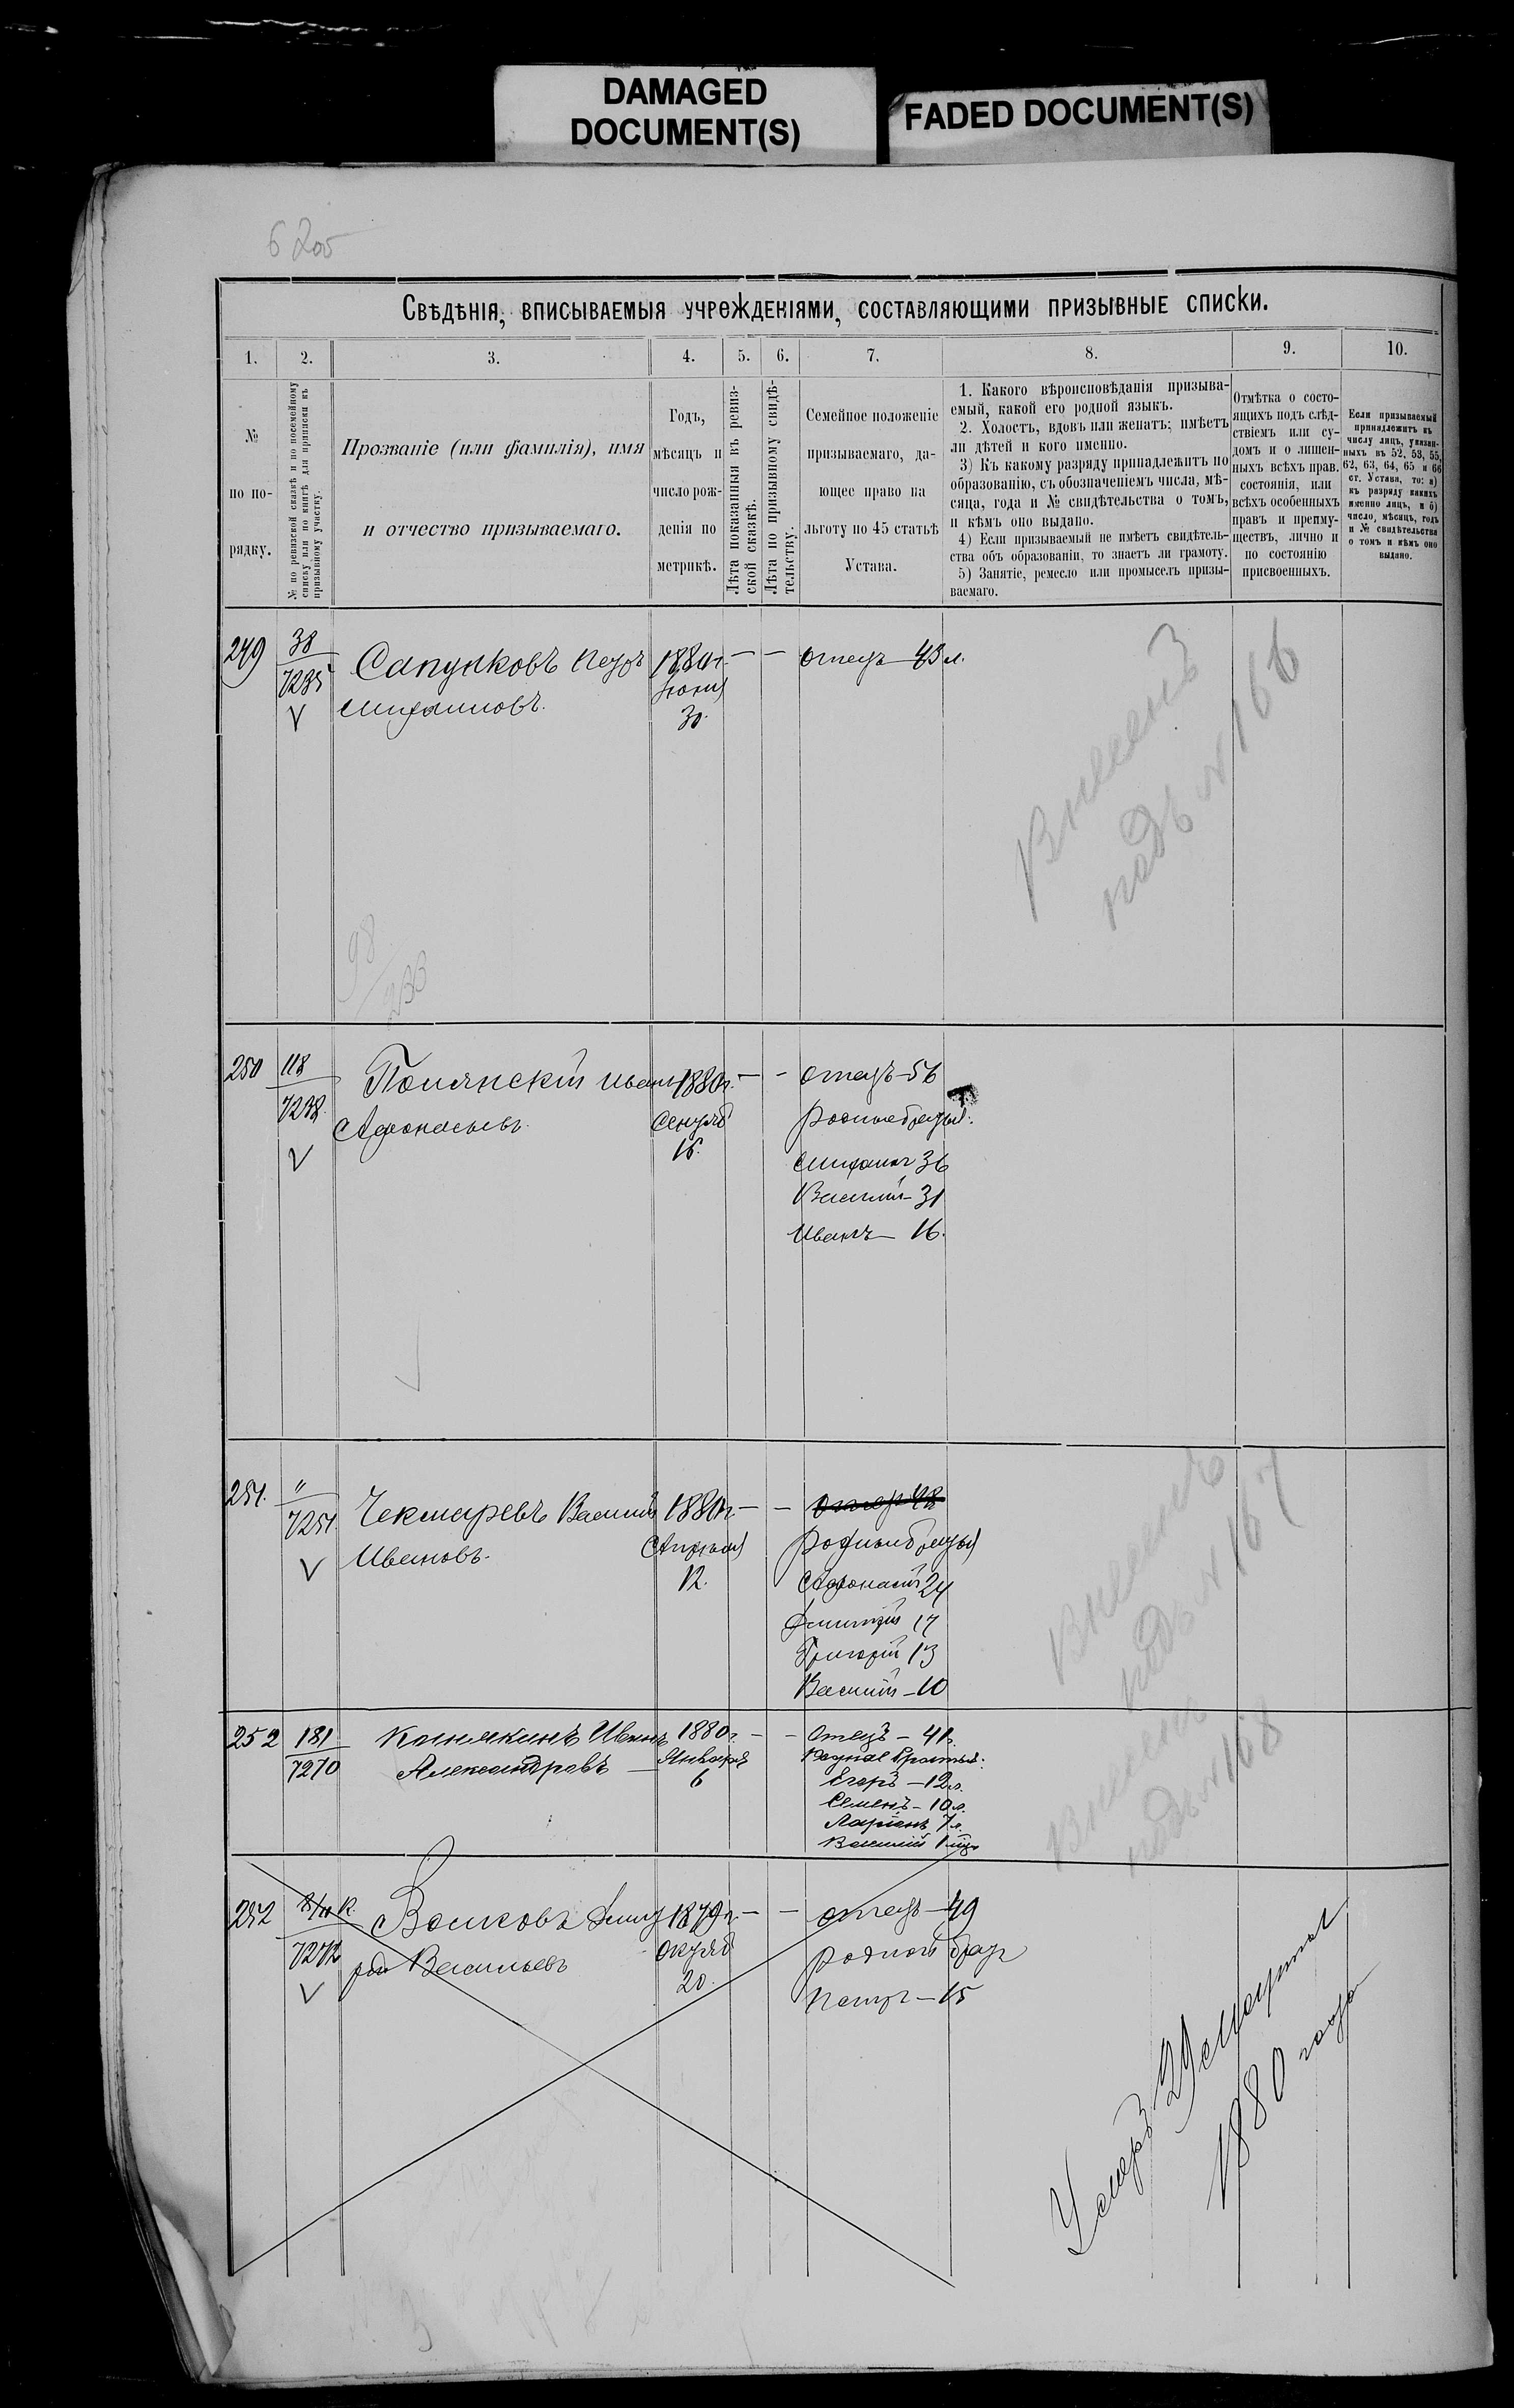 DAMAGED
DOCUMENT(S)
FADED DOCUMENT(S)
Свѣдѣнія, вписываемыя учрежденіями, составляющими призывные списки.
1. 2. 3. 4. 5. 6. 7. 8. 9. 10.
№
по по-
рядку.
№ по ревизской сказкѣ и по посемейному
списку или по книгѣ для приписки къ
призывному участку.
Прозваніе (или фамилія), имя
и отчество призываемаго.
Годъ,
мѣсяцъ и
число рож-
денія по
метрикѣ.
Лѣта показанныя въ ревиз-
ской сказкѣ.
Лѣта по призывному свидѣ-
тельству.
Семейное положеніе
призываемаго, да-
ющее право на
льготу по 45 статьѣ
Устава.
1. Какого вѣроисповѣданія призыва-
емый, какой его родной языкъ.
2. Холостъ, вдовъ или женатъ; имѣетъ
ли дѣтей и кого именно.
3) Къ какому разряду принадлежитъ по
образованію, съ обозначеніемъ числа, мѣ-
сяца, года и № свидѣтельства о томъ,
и кѣмъ оно выдано.
4) Если призываемый не имѣетъ свидѣтель-
ства объ образованіи, то знаетъ ли грамоту.
5) Занятіе, ремесло или промыселъ призы-
ваемаго.
Отмѣтка о состо-
ящихъ подъ слѣд-
ствіемъ или су-
домъ и о лишен-
ныхъ всѣхъ прав.
состоянія, или
всѣхъ особенныхъ
правъ и преиму-
ществъ, лично и
по состоянію
присвоенныхъ.
Если призываемый
принадлежитъ къ
числу лицъ, указан-
ныхъ въ 52, 53, 55,
62, 63, 64, 65 и 66
ст. Устава, то: а)
къ разряду какихъ
именно лицъ, и б)
число, мѣсяцъ, годъ
и № свидѣтельства
о томъ и кѣмъ оно
выдано.
249 38 Сапунковъ Петръ 1880г. — — отецъ 43 л.
7235 Июня
30.
Внесенъ
подъ № 166
98
233
250 118 Иванъ 1880г. — - отецъ-56
7238 Афонасьевъ Сентяб
16.
родные братья:
36
Василий-31
Иванъ- 16.
251. " Чекмаревъ Василий 1880г. — -
7251 Ивановъ. Апреля
12.
родные братья
Афонасий 24
Дмитрий 17
Григорий 13
Василий-10
Внесенъ
подъ № 167
252 181 Иванъ 1880г. — - Отецъ - 41г.
7270 Александровъ Января
6
Родные братья:
Егоръ - 12л.
Семенъ - 10л.
Ларіонъ 7л.
Василій 1
Внесенъ
подъ № 168
252 Волковъ Дмит 1879г. — - отецъ-49
7272 рій Васильевъ октяб
20.
родной братъ
Петръ-15
Умеръ 29 Марта
1880 года